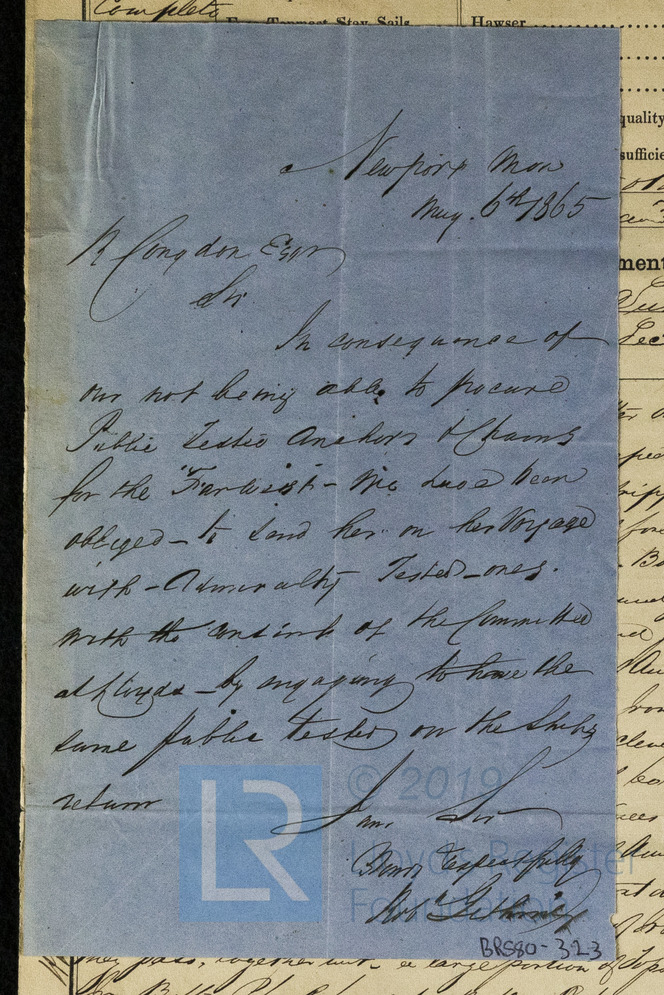 Complete
Fore Topmast Stay Sails
Hawser
quality
Newport Mon
May. 6th 1865
R Congdon Esqr
Sir
In consequence of
our not being able to procure
Public Tested Anchors & Chains
for the "        " We have been
obliged - to send her on her Voyage
with - Admiralty Tested - ones.
with the consent of the Committee
at Lloyds - by engaging to have the
same public tested on the Ships
return
I am Sir
Yours respectfully
Robt
LR
© 2019
Lloyd's Register
Foundation
BRS80-323
they pass, together with a large portion of